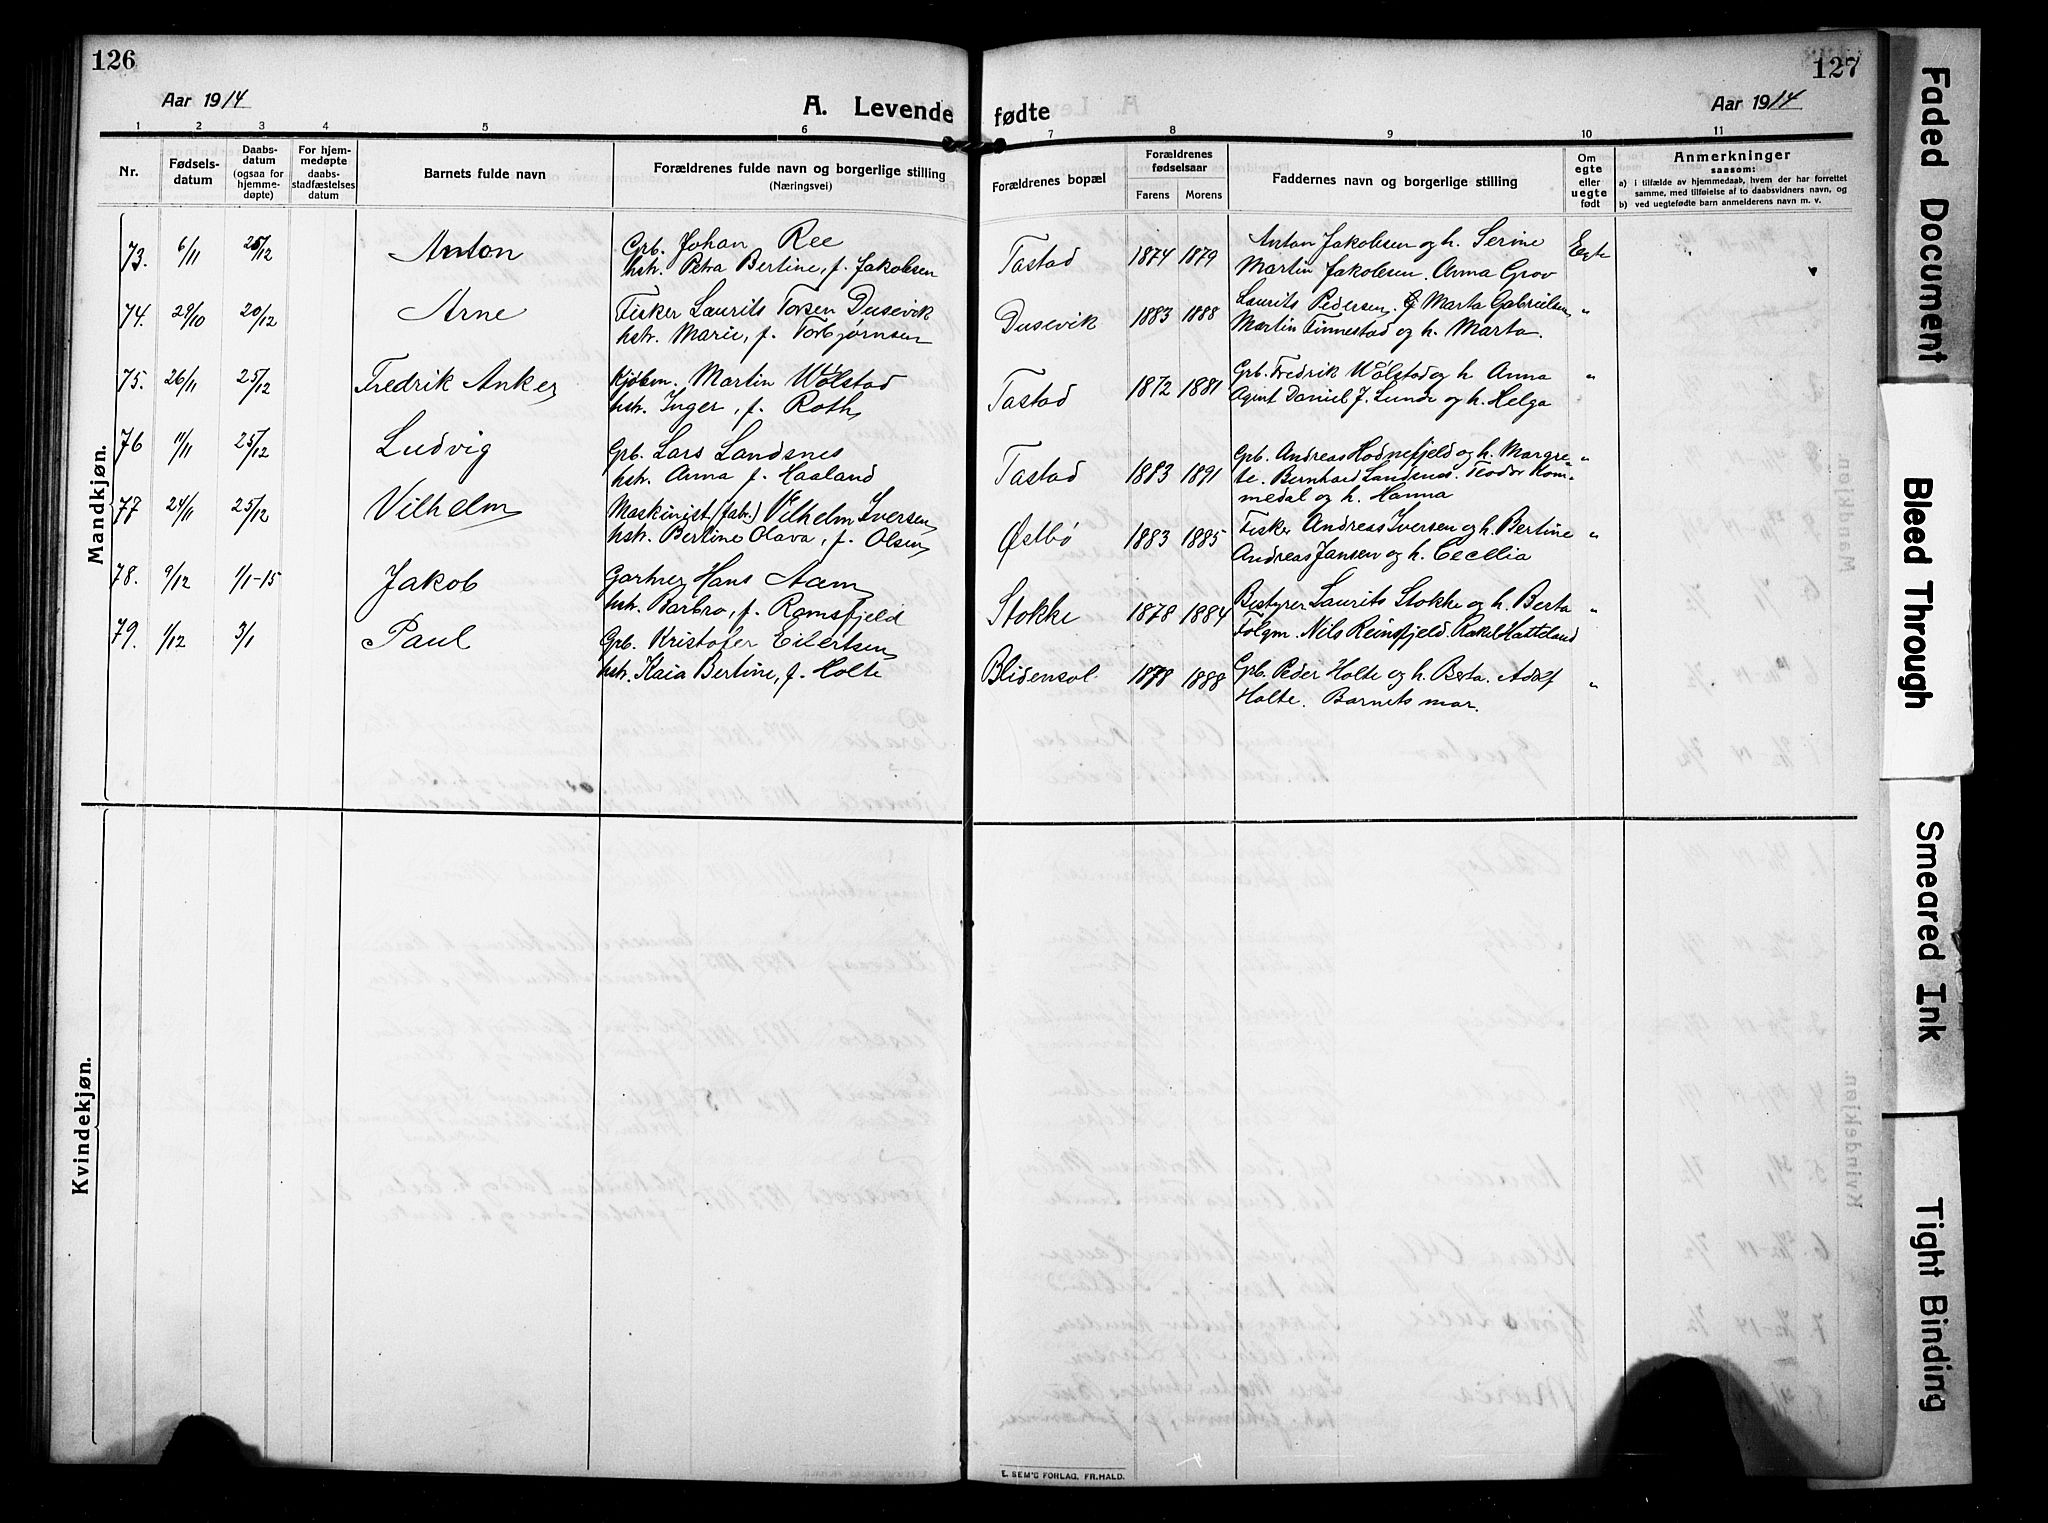 126
127
Aar 1914
A. Levende fødte
Aar 1914
1 2 3 4 5 6 7 8 9 10 11
Nr.
Fødsels-
datum
Daabs-
datum
(ogsaa for
hjemme-
døpte)
For hjem-
medøpte
daabs-
stadfæstelses
datum
Barnets fulde navn
Forældrenes fulde navn og borgerlige stilling
(Næringsvei)
Forældrenes bopæl
Forældrenes
fødselsaar
Farens Morens
Faddernes navn og borgerlige stilling
Om
egte
eller
uegte
født
Anmerkninger
saasom:
a) i tilfælde av hjemmedaab, hvem der har forrettet
samme, med tilføielse af to daabsvidners navn, og
b) ved uegtefødte barn anmelderens navn m. v.
Mandkjøn.
73. 6/11 25/12 Anton Grb. Johan Ree Tastad 1874 1879 Anton Jakobsen og h. Serine Egte
hstr. Petra Bertine, f. Jakobsen Martin Jakobsen. Anna Grov
74. 29/10 20/12 Arne Fisker Laurits Torsen Dusevik Dusevik 1883 1888 Laurits Pedersen. Marta Gabrielsen "
hstr. Marie, f. Torbjørnsen Martin Finnestad og h. Marta.
75. 26/11 25/12 Fredrik Anker Kjøbm. Martin Wølstad Tastad 1872 1881 Grb. Fredrik Wølstad og h Anna "
hstr. Inger, f. Roth Agent Daniel J. Lunde og h. Helga
76 11/11 25/12 Ludvig Grb. Lars Landsnes Tastad 1883 1891 Grb. Andreas Hodnefjeld og h. Margre- "
hstr. Anna f. Haaland te. Bernhard Landsnes. Teodor Kom-
medal og h. Hanna
77 24/11 25/12 Vilhelm Maskinist (fabr.) Vilhelm Iversen Østbø 1883 1885 Fisker Andreas Iversen og h. Bertine "
hstr. Bertine Olava, f. Olsen Andreas Jansen og h. Cecelia
78. 9/12 1/1-15 Jakob Gartner Hans Aam Stokke 1878 1884 Bestyrer Laurits Stokke og h. Berta "
hstr. Barbro, f. Ramsfjeld Følgm. Nils Reinsfjeld. Rakel Hatteland
79. 1/12 3/1 Paul Grb. Kristofer Eilertsen Blidensol 1878 1888 Grb. Peder Holte og h. Berta. Adolf "
hstr. Kaia Bertine, f. Holte Holte. Barnets mor.
Kvindekjøn.
E. SEM'S FORLAG, FR.HALD.
Faded Document
Bleed Through
Smeared Ink
Tight Binding